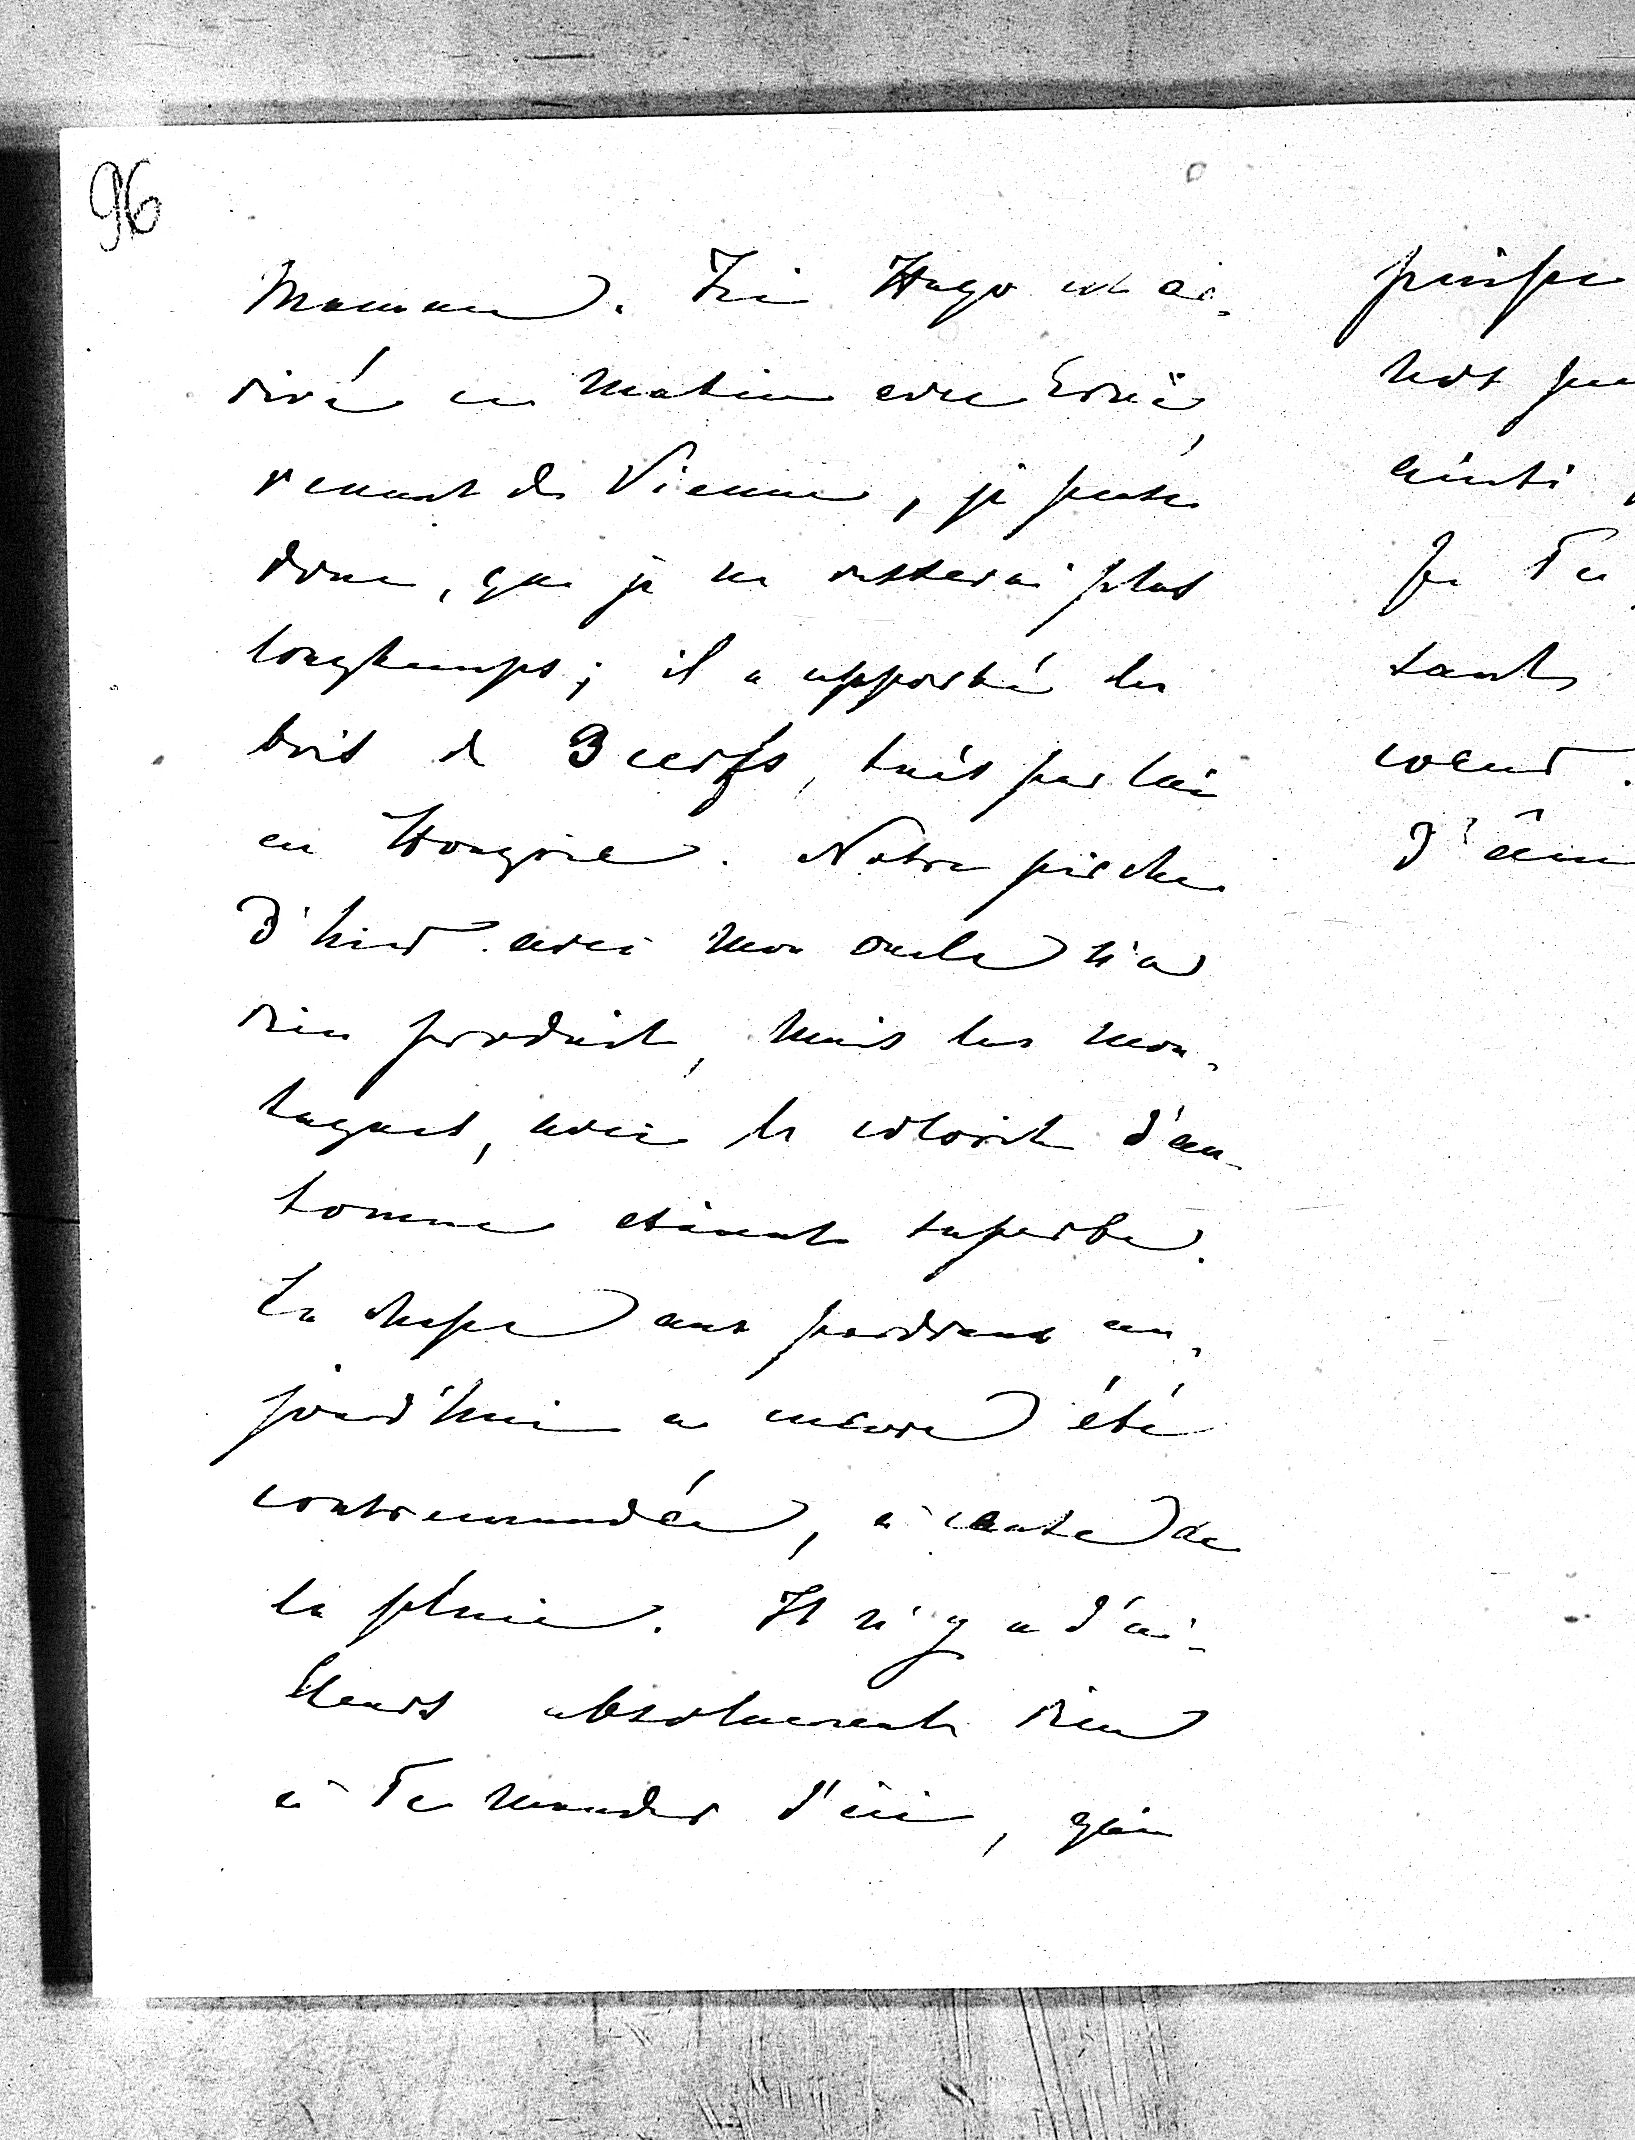 96
Maman. Ici Hugo est ar-
rivé ce matin avec Ernö,
venant de Vienne, je pense
donc, que je ne resterai plus
longtemps; il a apporté les
bois de 3 cerfs, tués par lui
en Hongrie. Notre pirche
d'hier avec mon oncle n'a
rien produit, mais les mon-
tagnes, avec le colorit d'au-
tomne etaient superbe.
La chasse aux perdreaux au-
jourd'hui a encore été
contremandée, à cause de
la pluie. Il n'y a d'ai-
lleurs absolument rien
à Te mander d'ici, qui
puisse
nos
ainsi
je Te
tant
coeur.
d'âme